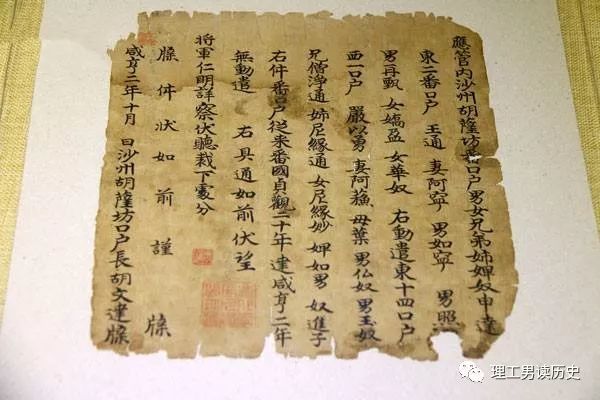 應管内沙州胡薩坊番口户男女兄弟姉婢奴申達
東二番口户 王通 妻阿寧 男如寧 男照
男再甄 女嬌盈 女華奴 右動遣東十四口户
西一口户 嚴以勇 妻阿蘓 母葉 男仏奴 男玉奴
兄僧淨通 姉尼緣通 女尼緣妙 婢如男 奴進子
右件番口户從来番國貞觀二十年達咸亨二年
無動遣 右具通如前伏望
將軍仁明詳察伏聽裁下處分
牒件状如前謹牒
咸亨二年十月 日沙州胡薩坊口户長胡文達牒
理工男读历史